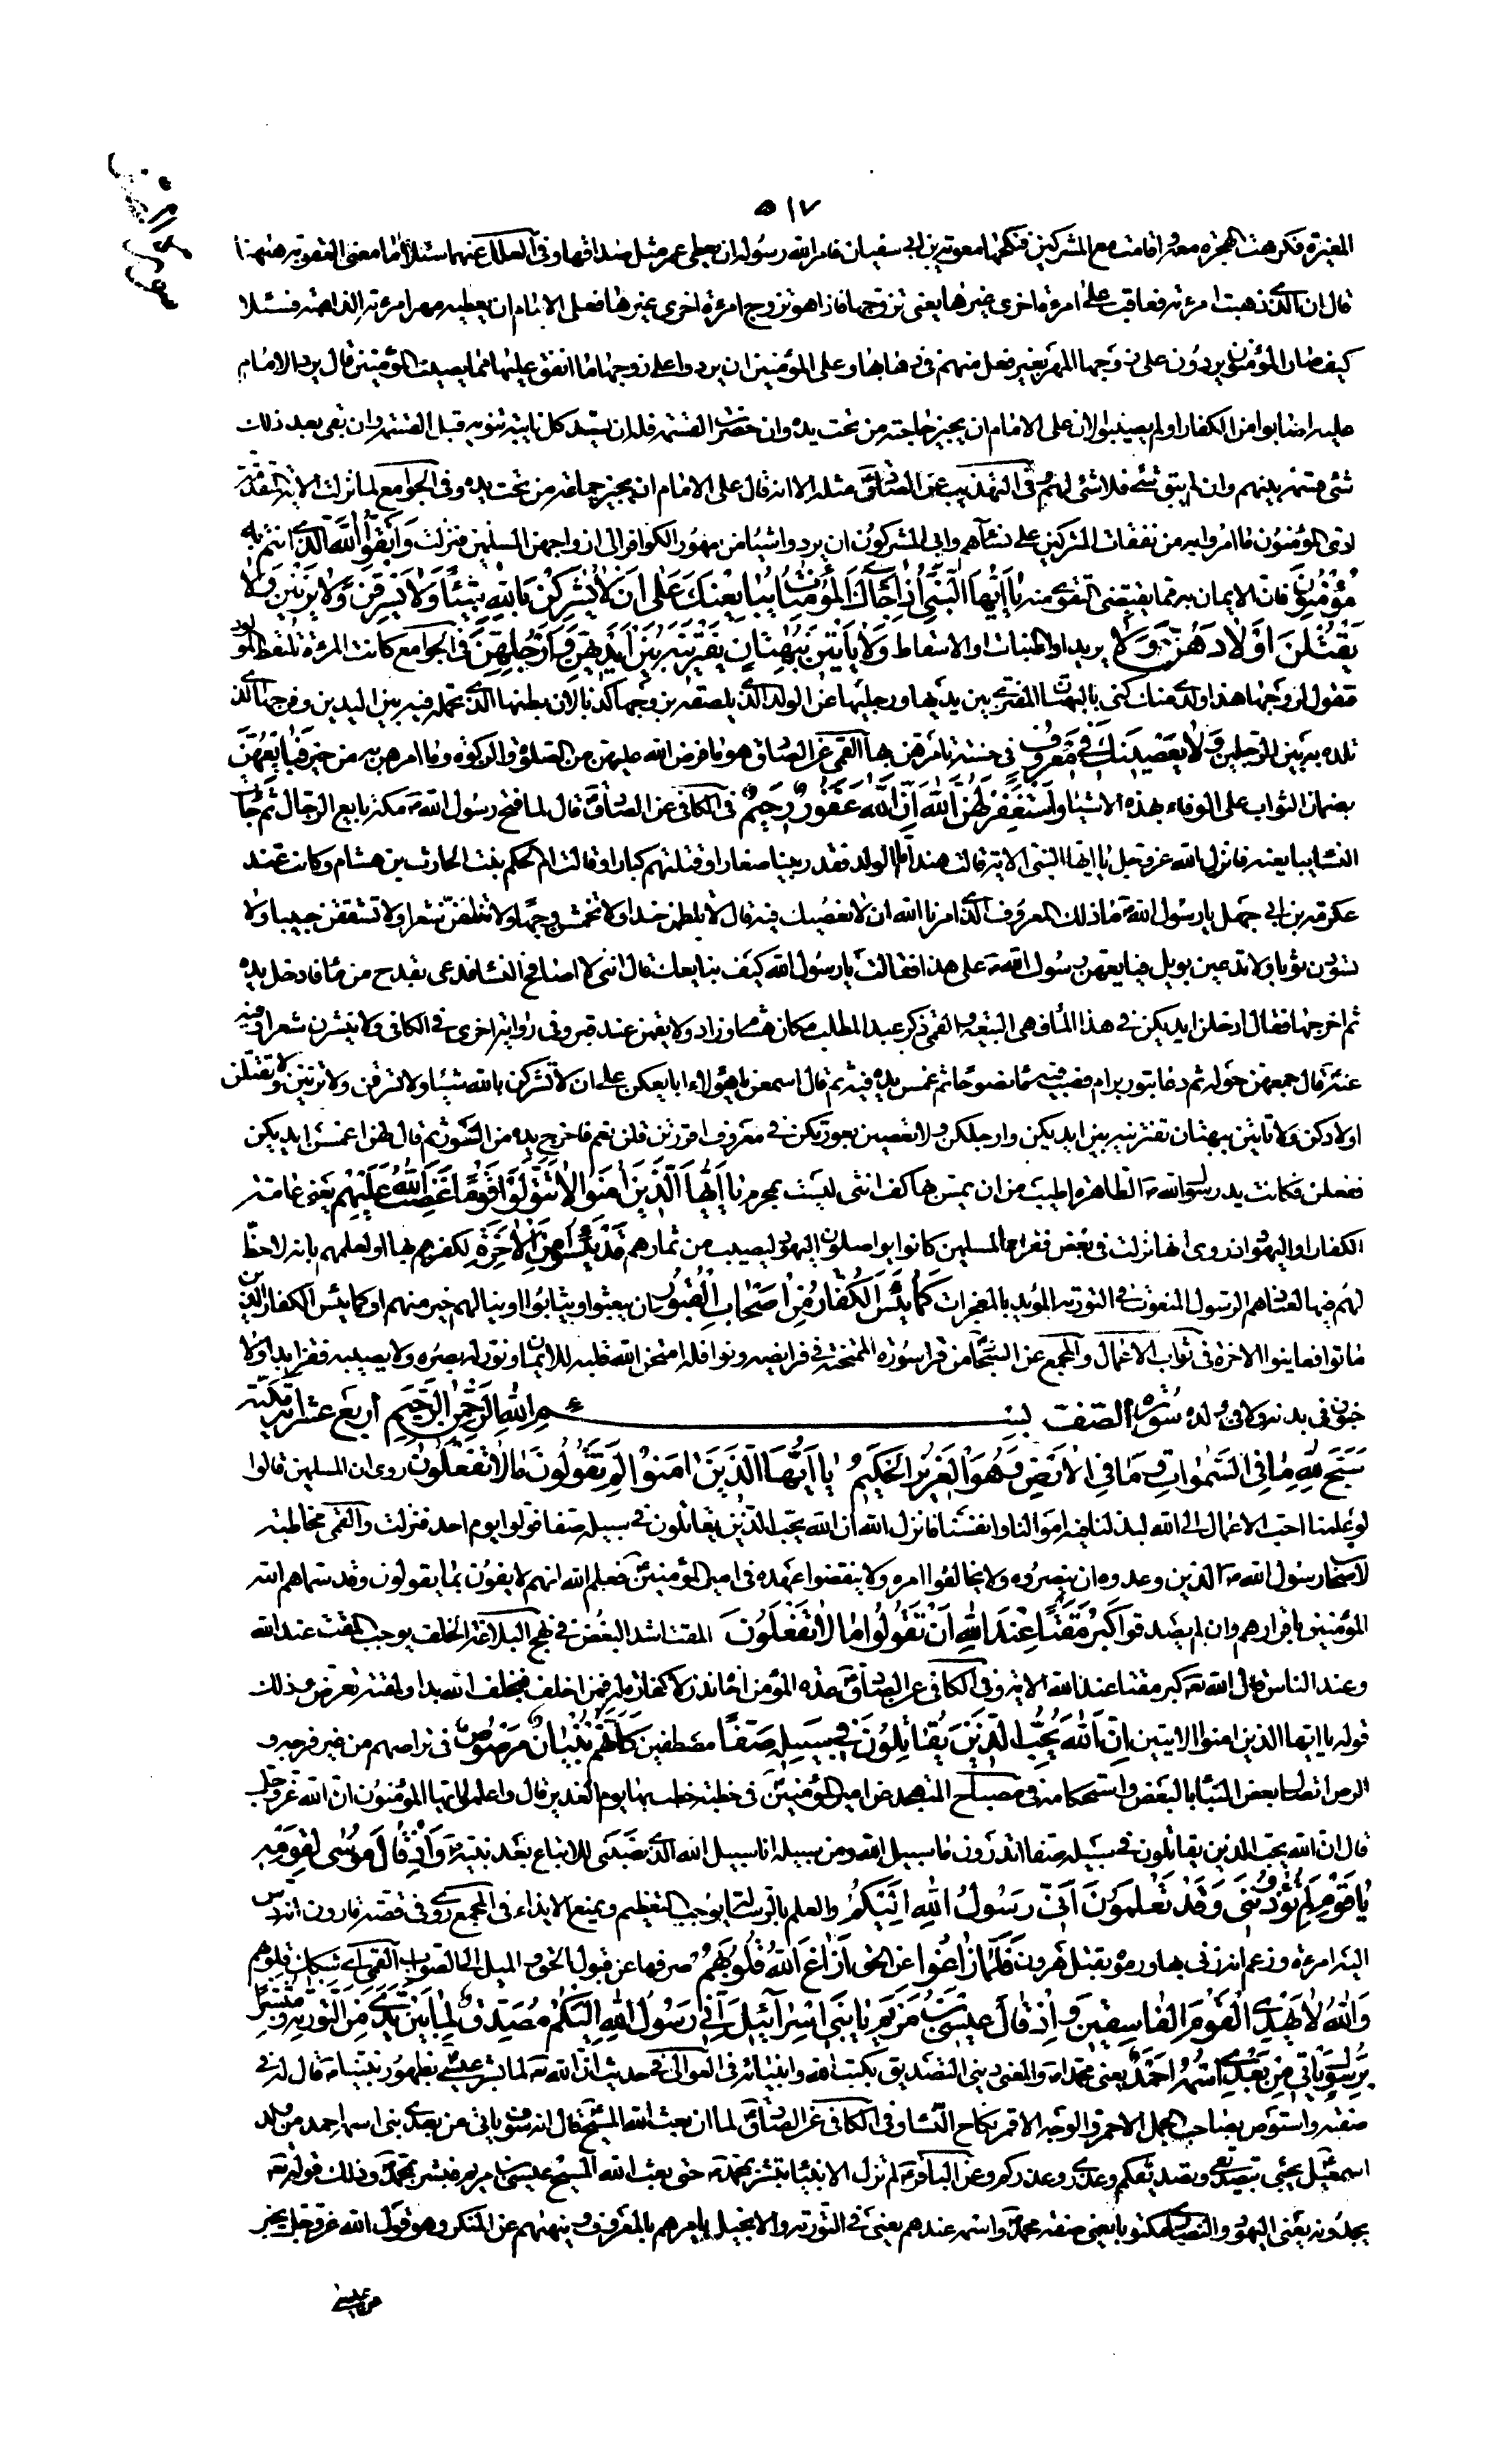 ٥١٧
المغيرة فكرهت الهجرة معه واقامت مع المشركين فنكحها معوية بن ابي سفيان فامر الله رسوله ان يعطي عمر مثل صداقها وفي العلل عنهما سئلا ما معنى العقوبة هيهنا
قال ان الذي ذهبت امرءته فعاقب على امرءة اخرى غيرها يعني تزوجها فاذا هو تزوج امرءة اخرى غيرها فعلى الامام ان يعطيه مهر امرءته الذاهبة فسئلا
كيف صار المؤمنون يردون على زوجها المهر بغير فعل منهم في ذهابها وعلى المؤمنين ان يردوا على زوجها ما انفق عليها مما يصيب المؤمنين قال يرد الامام
عليه اصابوا من الكفار او لم يصيبوا لان على الامام ان يجيز حاجته من تحت يده وان حضرت القسمة فله ان يسد كل نائبة تنوبه قبل القسمة وان بقي بعد ذلك
شئ قسمه بينهم وان لم يبق شئ فلا شئ لهم وفي التهذيب عن الصادق مثله الا انه قال على الامام ان يجيز جماعة من تحت يده وفي الجوامع لما نزلت الاية المتقدمة
ادى المؤمنون ما امروا به من نفقات المشركين على نسآئهم وابى المشركون ان يردوا شيئا من مهور الكوافر الى ازواجهن المسلمين فنزلت وَاتَّقُوا اللَّهَ الَّذِي اَنْتُمْ بِهِ
مُؤْمِنُونَ فان الايمان به مما يقتضي التقوى منه يَا اَيُّهَا النَّبِيُّ اِذَا جَآءَكَ الْمُؤْمِنَاتُ يُبَايِعْنَكَ عَلَى اَنْ لَا يُشْرِكْنَ بِاللَّهِ شَيْئًا وَلَا يَسْرِقْنَ وَلَا يَزْنِينَ وَلَا
يَقْتُلْنَ اَوْلَادَهُنَّ يريد وأد البنات او الاسقاط وَلَا يَأْتِينَ بِبُهْتَانٍ يَفْتَرِينَهُ بَيْنَ اَيْدِيهِنَّ وَاَرْجُلِهِنَّ في الجوامع كانت المرءة تلتقط المولود
فتقول لزوجها هذا ولدي منك كنى بالبهتان المفترى بين يديها ورجليها عن الولد الذي يلصقه بزوجها كذبا لان بطنها الذي تحمله فيه بين اليدين وفرجها الذي
تلده به بين الرجلين وَلَا يَعْصِينَكَ فِي مَعْرُوفٍ في حسنة تامرهن بها القمي عن الصادق هو ما فرض الله عليهن من الصلوة والزكوة وما امرهن به من خير فَبَايِعْهُنَّ
بضمان الثواب على الوفاء بهذه الاشياء وَاسْتَغْفِرْ لَهُنَّ اللَّهَ اِنَّ اللَّهَ غَفُورٌ رَحِيمٌ في الكافي عن الصادق قال لما فتح رسول الله مكة بايع الرجال ثم جآءت
النسآء يبايعنه فانزل الله عز وجل يا ايها النبي الاية قالت هند اما الولد فقد ربينا صغارا وقتلتهم كبارا وقالت ام الحكم بنت الحارث بن هشام وكانت عند
عكرمة بن ابي جهل يا رسول الله ما ذلك المعروف الذي امرنا الله ان لا نعصيك فيه قال لا تلطمن خدا ولا تخمشن وجها ولا تنتفن شعرا ولا تشققن جيبا ولا
تسودن ثوبا ولا تدعين بويل فبايعهن رسول الله على هذا فقالت يا رسول الله كيف نبايعك قال انني لا اصافح النسآء فدعى بقدح من مآء فادخل يده
ثم اخرجها فقال ادخلن ايديكن في هذا المآء فهي البيعة والقمي ذكر عبد المطلب مكان هشام وزاد ولا يقمن عند قبر وفي رواية اخرى في الكافي ولا ينشرن شعرا وفيه
عنه قال جمعهن حوله ثم دعا بتور برام فصب فيه مآء نضوحا ثم غمس يده فيه ثم قال اسمعن يا هؤلاء ابايعكن على ان لا تشركن بالله شيئا ولا تسرقن ولا تزنين ولا تقتلن
اولادكن ولا تأتين ببهتان تفترينه بين ايديكن وارجلكن ولا تعصين بعولتكن في معروف اقررتن قلن نعم فاخرج يده من التور ثم قال لهن اغمسن ايديكن
ففعلن فكانت يد رسول الله الطاهرة اطيب من ان يمس بها كف انثى ليست بمحرم يَا اَيُّهَا الَّذِينَ اٰمَنُوا لَا تَتَوَلَّوْا قَوْمًا غَضِبَ اللَّهُ عَلَيْهِمْ يعني عامة
الكفار او اليهود اذ روي انها نزلت في بعض فقرآء المسلمين كانوا يواصلون اليهود ليصيبوا من ثمارهم قَدْ يَئِسُوا مِنَ الْاٰخِرَةِ لكفرهم بها او لعلمهم بانه لا حظ
لهم فيها لعنادهم الرسول المنعوت في التورية المؤيد بالمعجزات كَمَا يَئِسَ الْكُفَّارُ مِنْ اَصْحَابِ الْقُبُورِ ان يبعثوا ويثابوا او ينالهم خير منهم او كما يئس الكفار الذين
ماتوا فعاينوا الاخرة في ثواب الاعمال والمجمع عن السجاد من قرء سورة الممتحنة في فرايضه ونوافله امتحن الله قلبه للايمان ونور له بصره ولا يصيبه فقر ابدا ولا
جنون في بدنه ولا في ولده سُورَةُ الصَّفّ بِسْمِ اللّٰهِ الرَّحْمٰنِ الرَّحِيمِ اربع عشر اية مكية
سَبَّحَ لِلّٰهِ مَا فِي السَّمٰوَاتِ وَمَا فِي الْاَرْضِ وَهُوَ الْعَزِيزُ الْحَكِيمُ يَا اَيُّهَا الَّذِينَ اٰمَنُوا لِمَ تَقُولُونَ مَا لَا تَفْعَلُونَ روي ان المسلمين قالوا
لو علمنا احب الاعمال الى الله لبذلنا فيه اموالنا وانفسنا فانزل الله ان الله يحب الذين يقاتلون في سبيله صفا فولوا يوم احد فنزلت والقمي مخاطبة
لاصحاب رسول الله الذين وعدوه ان ينصروه ولا يخالفوا امره ولا ينقضوا عهده في امير المؤمنين فعلم الله انهم لا يفون بما يقولون وقد سماهم الله
المؤمنين باقرارهم وان لم يصدقوا كَبُرَ مَقْتًا عِنْدَ اللّٰهِ اَنْ تَقُولُوا مَا لَا تَفْعَلُونَ المقت اشد البغض في نهج البلاغة الخلف يوجب المقت عند الله
وعند الناس قال الله تعالى كبر مقتا عند الله الاية وفي الكافي عن الصادق عدة المؤمن اخاه نذر لا كفارة له فمن اخلف فبخلف الله بدا ولمقته تعرض وذلك
قوله يا ايها الذين امنوا الايتين اِنَّ اللّٰهَ يُحِبُّ الَّذِينَ يُقَاتِلُونَ فِي سَبِيلِهِ صَفًّا مصطفين كَاَنَّهُمْ بُنْيَانٌ مَرْصُوصٌ في تراصهم من غير فرجة و
الرص اتصال بعض البنآء بالبعض واستحكامه في مصباح المتهجد عن امير المؤمنين في خطبة خطب بها يوم الغدير قال واعلموا ايها المؤمنون ان الله عز وجل
قال ان الله يحب الذين يقاتلون في سبيله صفا اتدرون ما سبيل الله ومن سبيله انا سبيل الله الذي نصبني للاتباع بعد نبيه وَاِذْ قَالَ مُوسٰى لِقَوْمِهِ
يَا قَوْمِ لِمَ تُؤْذُونَنِي وَقَدْ تَعْلَمُونَ اَنِّي رَسُولُ اللّٰهِ اِلَيْكُمْ والعلم بالرسالة يوجب التعظيم ويمنع الايذاء في المجمع روي في قصة قارون انه دس
اليه امرءة وزعم انه زنى بها ورموه بقتل هرون فَلَمَّا زَاغُوا عن الحق اَزَاغَ اللّٰهُ قُلُوبَهُمْ صرفها عن قبول الحق والميل الى الصواب القمي اي شكك قلوبهم
وَاللّٰهُ لَا يَهْدِي الْقَوْمَ الْفَاسِقِينَ وَاِذْ قَالَ عِيسَى بْنُ مَرْيَمَ يَا بَنِي اِسْرَآئِيلَ اِنِّي رَسُولُ اللّٰهِ اِلَيْكُمْ مُصَدِّقًا لِمَا بَيْنَ يَدَيَّ مِنَ التَّوْرٰيةِ وَمُبَشِّرًا
بِرَسُولٍ يَأْتِي مِنْ بَعْدِي اسْمُهُ اَحْمَدُ يعني محمدا والمعنى ديني التصديق بكتب الله وانبيائه في العوالي في حديث ان الله لما بشر عيسى بظهور نبينا قال له في
صفته واستوص بصاحب الجمل الاحمر والوجه الاقمر نكاح النسآء وفي الكافي عن الصادق لما ان بعث الله المسيح قال انه سوف ياتي من بعدي نبي اسمه احمد من ولد
اسمعيل يجئ بتصديقي وتصديقكم وعذري وعذركم وعن الباقر لم تزل الانبيآء تبشر بمحمد حتى بعث الله المسيح عيسى بن مريم فبشر بمحمد وذلك قوله تعالى
يجدونه يعني اليهود والنصارى مكتوبا يعني صفة محمد واسمه عندهم يعني في التورية والانجيل يامرهم بالمعروف وينهيهم عن المنكر وهو قول الله عز وجل يخبر
عن عيسى